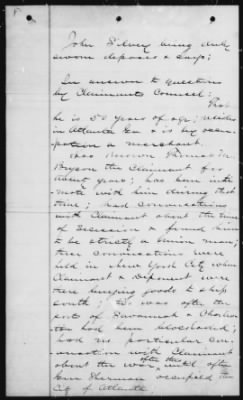 John Silvey being duly
sworn deposes & says;
In answer to questions
by Claimants Counsel:
That
he is 50 years of age; resides
in Atlanta Ga & is by occu-
pation a merchant.
Has known Thomas M.
Bryson the Claimant for
about years; has been inti-
mate with him during that
time; had conversations
with Claimant about the time
of Secession & found him
to be strictly a Union man;
these conversations were
held in New York City when
Claimant & deponent were
there buying goods to ship
south; it was after the
ports of Savannah & Charles-
ton had been blockaded;
had no particular con-
versation with Claimant
about the war, after this until after
Gen Sherman occupied the
City of Atlanta